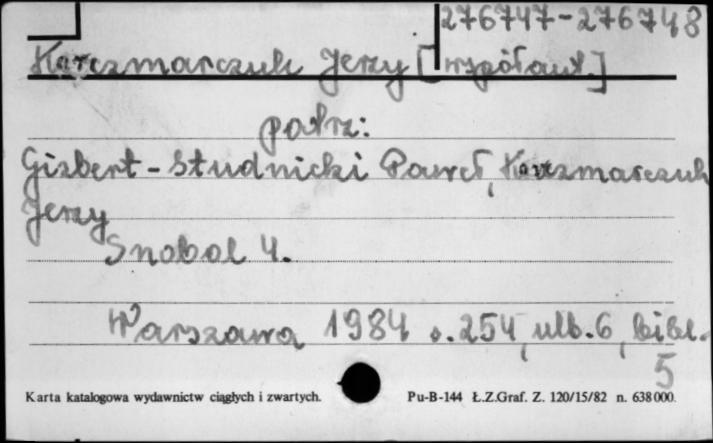 276747-276748
Karczmarczuk Jerzy [współaut.]
patrz:
Gizbert-Studnicki Paweł, Karczmarczuk
Jerzy
Snobol 4.
Warszawa 1984 s. 254, ulb. 6, bibl.
5
Karta katalogowa wydawnictw ciągłych i zwartych. Pu-B-144 Ł.Z.Graf. Z. 120/15/82 n. 638000.